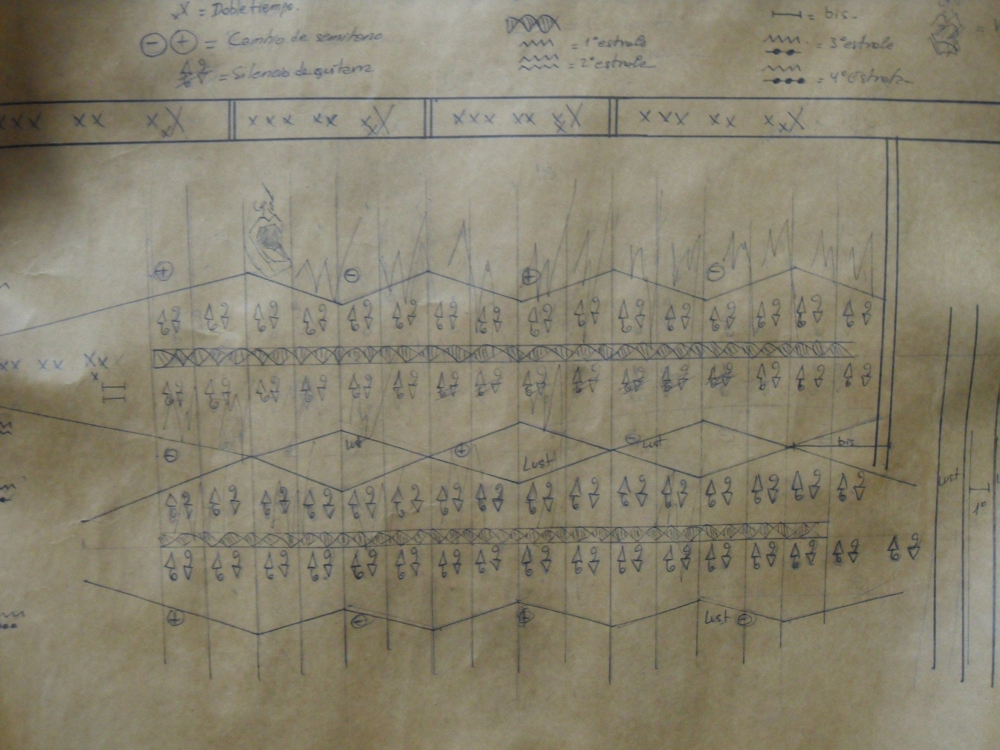 xX = Doble tiempo.
⊖ ⊕ = Cambio de semitono
= Silencio de guitarra
= 1ª estrofa
= 2ª estrofa
= bis
= 3ª estrofa
= 4ª Estrofa
xxx xx xxX
xxx xx xxX
xxx xx xxX
xxx xx xxX
⊕ ⊖ ⊕ ⊖
xx xx Xxx
⊖ Lust ⊕ Lust ⊖ Lust bis
Lust
1ª
⊕ ⊖ ⊕ Lust ⊖